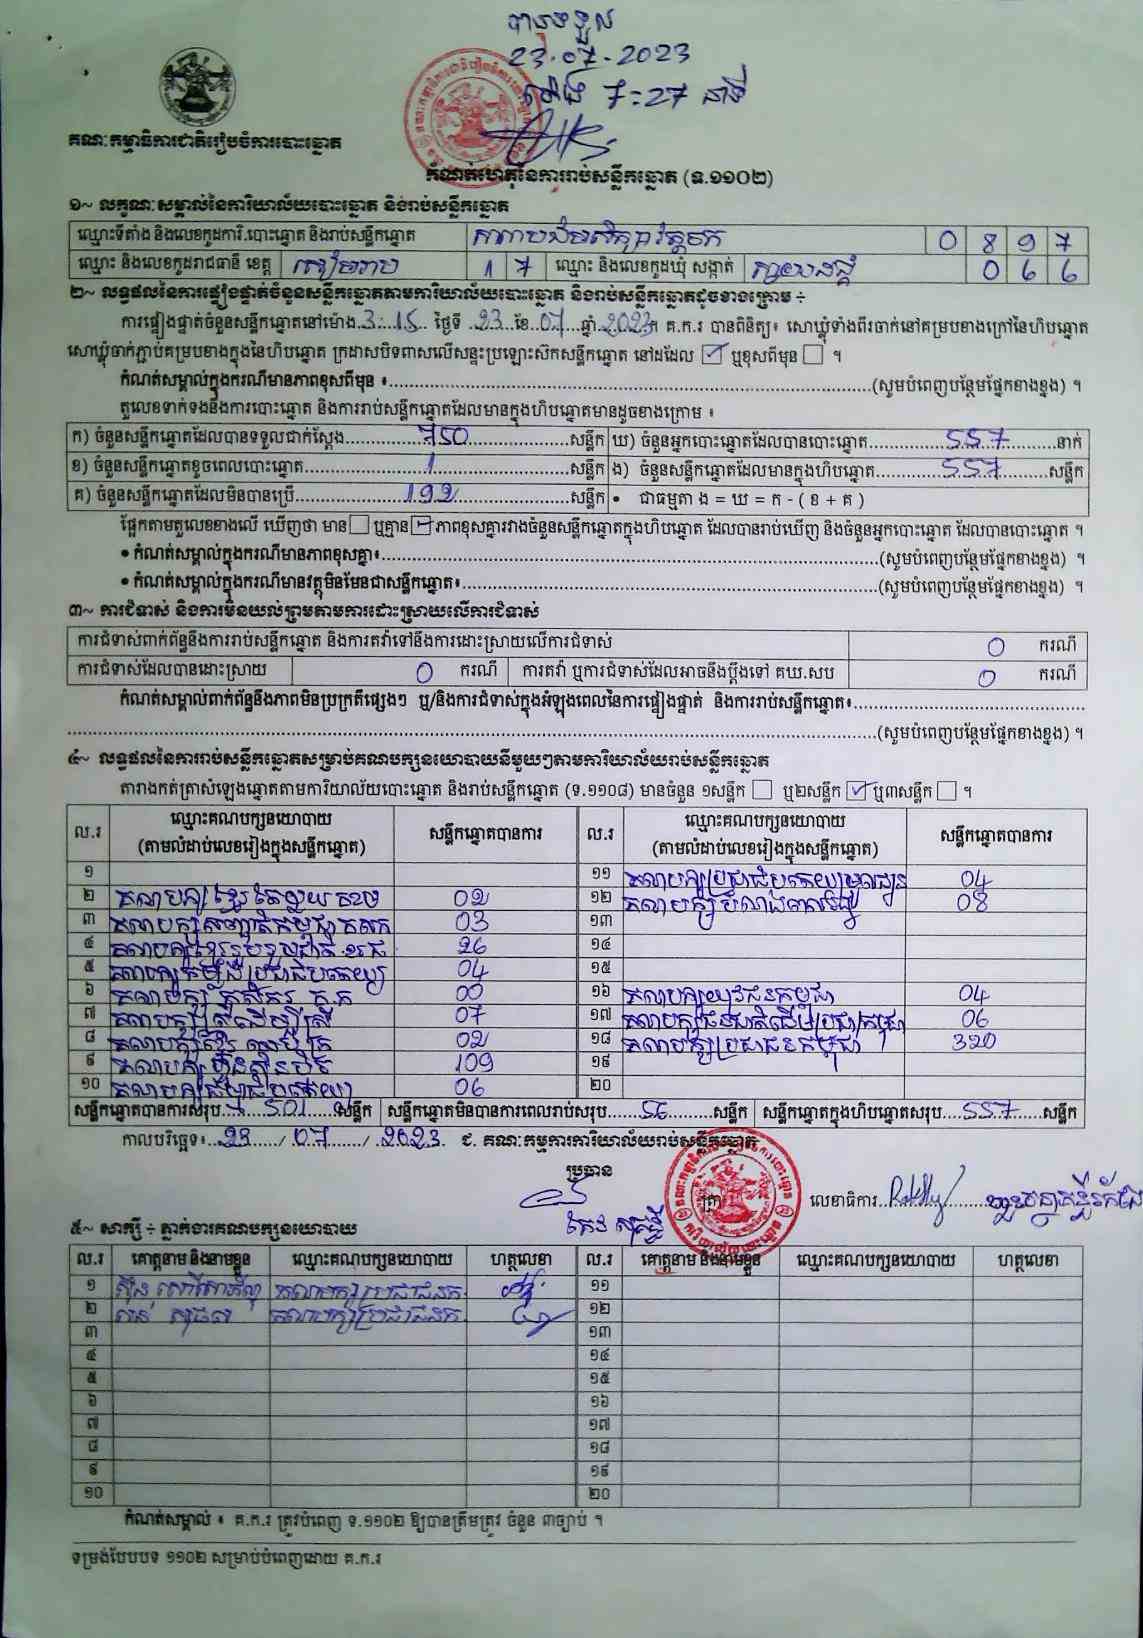 បានទទួល
23.07.2023
ម៉ោង 7:27 នាទី
គណៈកម្មាធិការជាតិរៀបចំការបោះឆ្នោត
កំណត់ហេតុនៃការរាប់សន្លឹកឆ្នោត (ទ.១១០២)
១~ លក្ខណៈសម្គាល់នៃការិយាល័យបោះឆ្នោត និងរាប់សន្លឹកឆ្នោត
ឈ្មោះទីតាំង និងលេខកូដការិ.បោះឆ្នោត និងរាប់សន្លឹកឆ្នោត 0 8 9 7
ឈ្មោះ និងលេខកូដរាជធានី ខេត្ត សៀមរាប 1 7 ឈ្មោះ និងលេខកូដឃុំ សង្កាត់ 0 6 6
២~ លទ្ធផលនៃការផ្ទៀងផ្ទាត់ចំនួនសន្លឹកឆ្នោតតាមការិយាល័យបោះឆ្នោត និងរាប់សន្លឹកឆ្នោតដូចខាងក្រោម ÷
ការផ្ទៀងផ្ទាត់ចំនួនសន្លឹកឆ្នោតនៅម៉ោង 3:15 ថ្ងៃទី 23 ខែ 07 ឆ្នាំ 2023 គ.ក.រ បានពិនិត្យ៖ សោឃ្លុំទាំងពីរចាក់នៅគម្របខាងក្រៅនៃហិបឆ្នោត
សោឃ្លុំចាក់ភ្ជាប់គម្របខាងក្នុងនៃហិបឆ្នោត ក្រដាសបិទពាសលើសន្ទះប្រឡោះស៊កសន្លឹកឆ្នោត នៅដដែល ☑ ឬខុសពីមុន ☐ ។
កំណត់សម្គាល់ក្នុងករណីមានភាពខុសពីមុន ៖ (សូមបំពេញបន្ថែមផ្នែកខាងខ្នង) ។
តួលេខទាក់ទងនឹងការបោះឆ្នោត និងការរាប់សន្លឹកឆ្នោតដែលមានក្នុងហិបឆ្នោតមានដូចខាងក្រោម ៖
ក) ចំនួនសន្លឹកឆ្នោតដែលបានទទួលជាក់ស្តែង 750 សន្លឹក ឃ) ចំនួនអ្នកបោះឆ្នោតដែលបានបោះឆ្នោត 557 នាក់
ខ) ចំនួនសន្លឹកឆ្នោតខូចពេលបោះឆ្នោត 1 សន្លឹក ង) ចំនួនសន្លឹកឆ្នោតដែលមានក្នុងហិបឆ្នោត 557 សន្លឹក
គ) ចំនួនសន្លឹកឆ្នោតដែលមិនបានប្រើ 192 សន្លឹក • ជាធម្មតា ង = ឃ = ក - ( ខ + គ )
ផ្អែកតាមតួលេខខាងលើ ឃើញថា មាន ☐ ឬគ្មាន ☑ ភាពខុសគ្នារវាងចំនួនសន្លឹកឆ្នោតក្នុងហិបឆ្នោត ដែលបានរាប់ឃើញ និងចំនួនអ្នកបោះឆ្នោត ដែលបានបោះឆ្នោត ។
• កំណត់សម្គាល់ក្នុងករណីមានភាពខុសគ្នា៖ (សូមបំពេញបន្ថែមផ្នែកខាងខ្នង) ។
• កំណត់សម្គាល់ក្នុងករណីមានវត្ថុមិនមែនជាសន្លឹកឆ្នោត៖ (សូមបំពេញបន្ថែមផ្នែកខាងខ្នង) ។
៣~ ការជំទាស់ និងការមិនយល់ព្រមតាមការដោះស្រាយលើការជំទាស់
ការជំទាស់ពាក់ព័ន្ធនឹងការរាប់សន្លឹកឆ្នោត និងការតវ៉ាទៅនឹងការដោះស្រាយលើការជំទាស់ 0 ករណី
ការជំទាស់ដែលបានដោះស្រាយ 0 ករណី ការតវ៉ា ឬការជំទាស់ដែលអាចនឹងប្តឹងទៅ គឃ.សប 0 ករណី
កំណត់សម្គាល់ពាក់ព័ន្ធនឹងភាពមិនប្រក្រតីផ្សេងៗ ឬ/និងការជំទាស់ក្នុងអំឡុងពេលនៃការផ្ទៀងផ្ទាត់ និងការរាប់សន្លឹកឆ្នោត៖
(សូមបំពេញបន្ថែមផ្នែកខាងខ្នង) ។
៤~ លទ្ធផលនៃការរាប់សន្លឹកឆ្នោតសម្រាប់គណបក្សនយោបាយនីមួយៗតាមការិយាល័យរាប់សន្លឹកឆ្នោត
តារាងកត់ត្រាសំឡេងឆ្នោតតាមការិយាល័យបោះឆ្នោត និងរាប់សន្លឹកឆ្នោត (ទ.១១០៨) មានចំនួន ១សន្លឹក ☐ ឬ២សន្លឹក ☑ ឬ៣សន្លឹក ☐ ។
ល.រ ឈ្មោះគណបក្សនយោបាយ (តាមលំដាប់លេខរៀងក្នុងសន្លឹកឆ្នោត) សន្លឹកឆ្នោតបានការ ល.រ ឈ្មោះគណបក្សនយោបាយ (តាមលំដាប់លេខរៀងក្នុងសន្លឹកឆ្នោត) សន្លឹកឆ្នោតបានការ
១ ១១ គណបក្សប្រជាធិបតេយ្យមូលដ្ឋាន 04
២ គណបក្ស ខ្មែរតែមួយ 02 ១២ គណបក្ស 08
៣ គណបក្សសញ្ជាតិកម្ពុជា 03 ១៣
៤ គណបក្សខ្មែររួបរួមជាតិ 26 ១៤
៥ គណបក្សកម្លាំងប្រជាធិបតេយ្យ 04 ១៥
៦ គណបក្ស កសិករ 00 ១៦ គណបក្សយុវជនកម្ពុជា 04
៧ គណបក្សស្ត្រីដើម្បីស្ត្រី 07 ១៧ គណបក្សជនជាតិដើមប្រជាកម្ពុជា 06
៨ គណបក្សខ្មែរ 02 ១៨ គណបក្សប្រជាជនកម្ពុជា 320
៩ គណបក្សហ៊្វុនស៊ិនប៉ិច 109 ១៩
១០ គណបក្ស 06 ២០
សន្លឹកឆ្នោតបានការសរុប 501 សន្លឹក សន្លឹកឆ្នោតមិនបានការពេលរាប់សរុប 56 សន្លឹក សន្លឹកឆ្នោតក្នុងហិបឆ្នោតសរុប 557 សន្លឹក
កាលបរិច្ឆេទ៖ 23 / 07 / 2023 ជ. គណៈកម្មការការិយាល័យរាប់សន្លឹកឆ្នោត
ប្រធាន
លេខាធិការ
៥~ សាក្សី ÷ ភ្នាក់ងារគណបក្សនយោបាយ
ល.រ គោត្តនាម និងនាមខ្លួន ឈ្មោះគណបក្សនយោបាយ ហត្ថលេខា ល.រ គោត្តនាម និងនាមខ្លួន ឈ្មោះគណបក្សនយោបាយ ហត្ថលេខា
១ គណបក្សប្រជាជនក ១១
២ គណបក្សប្រជាជនក ១២
៣ ១៣
៤ ១៤
៥ ១៥
៦ ១៦
៧ ១៧
៨ ១៨
៩ ១៩
១០ ២០
កំណត់សម្គាល់ ៖ គ.ក.រ ត្រូវបំពេញ ទ.១១០២ ឱ្យបានត្រឹមត្រូវ ចំនួន ៣ច្បាប់ ។
ទម្រង់បែបបទ ១១០២ សម្រាប់បំពេញដោយ គ.ក.រ